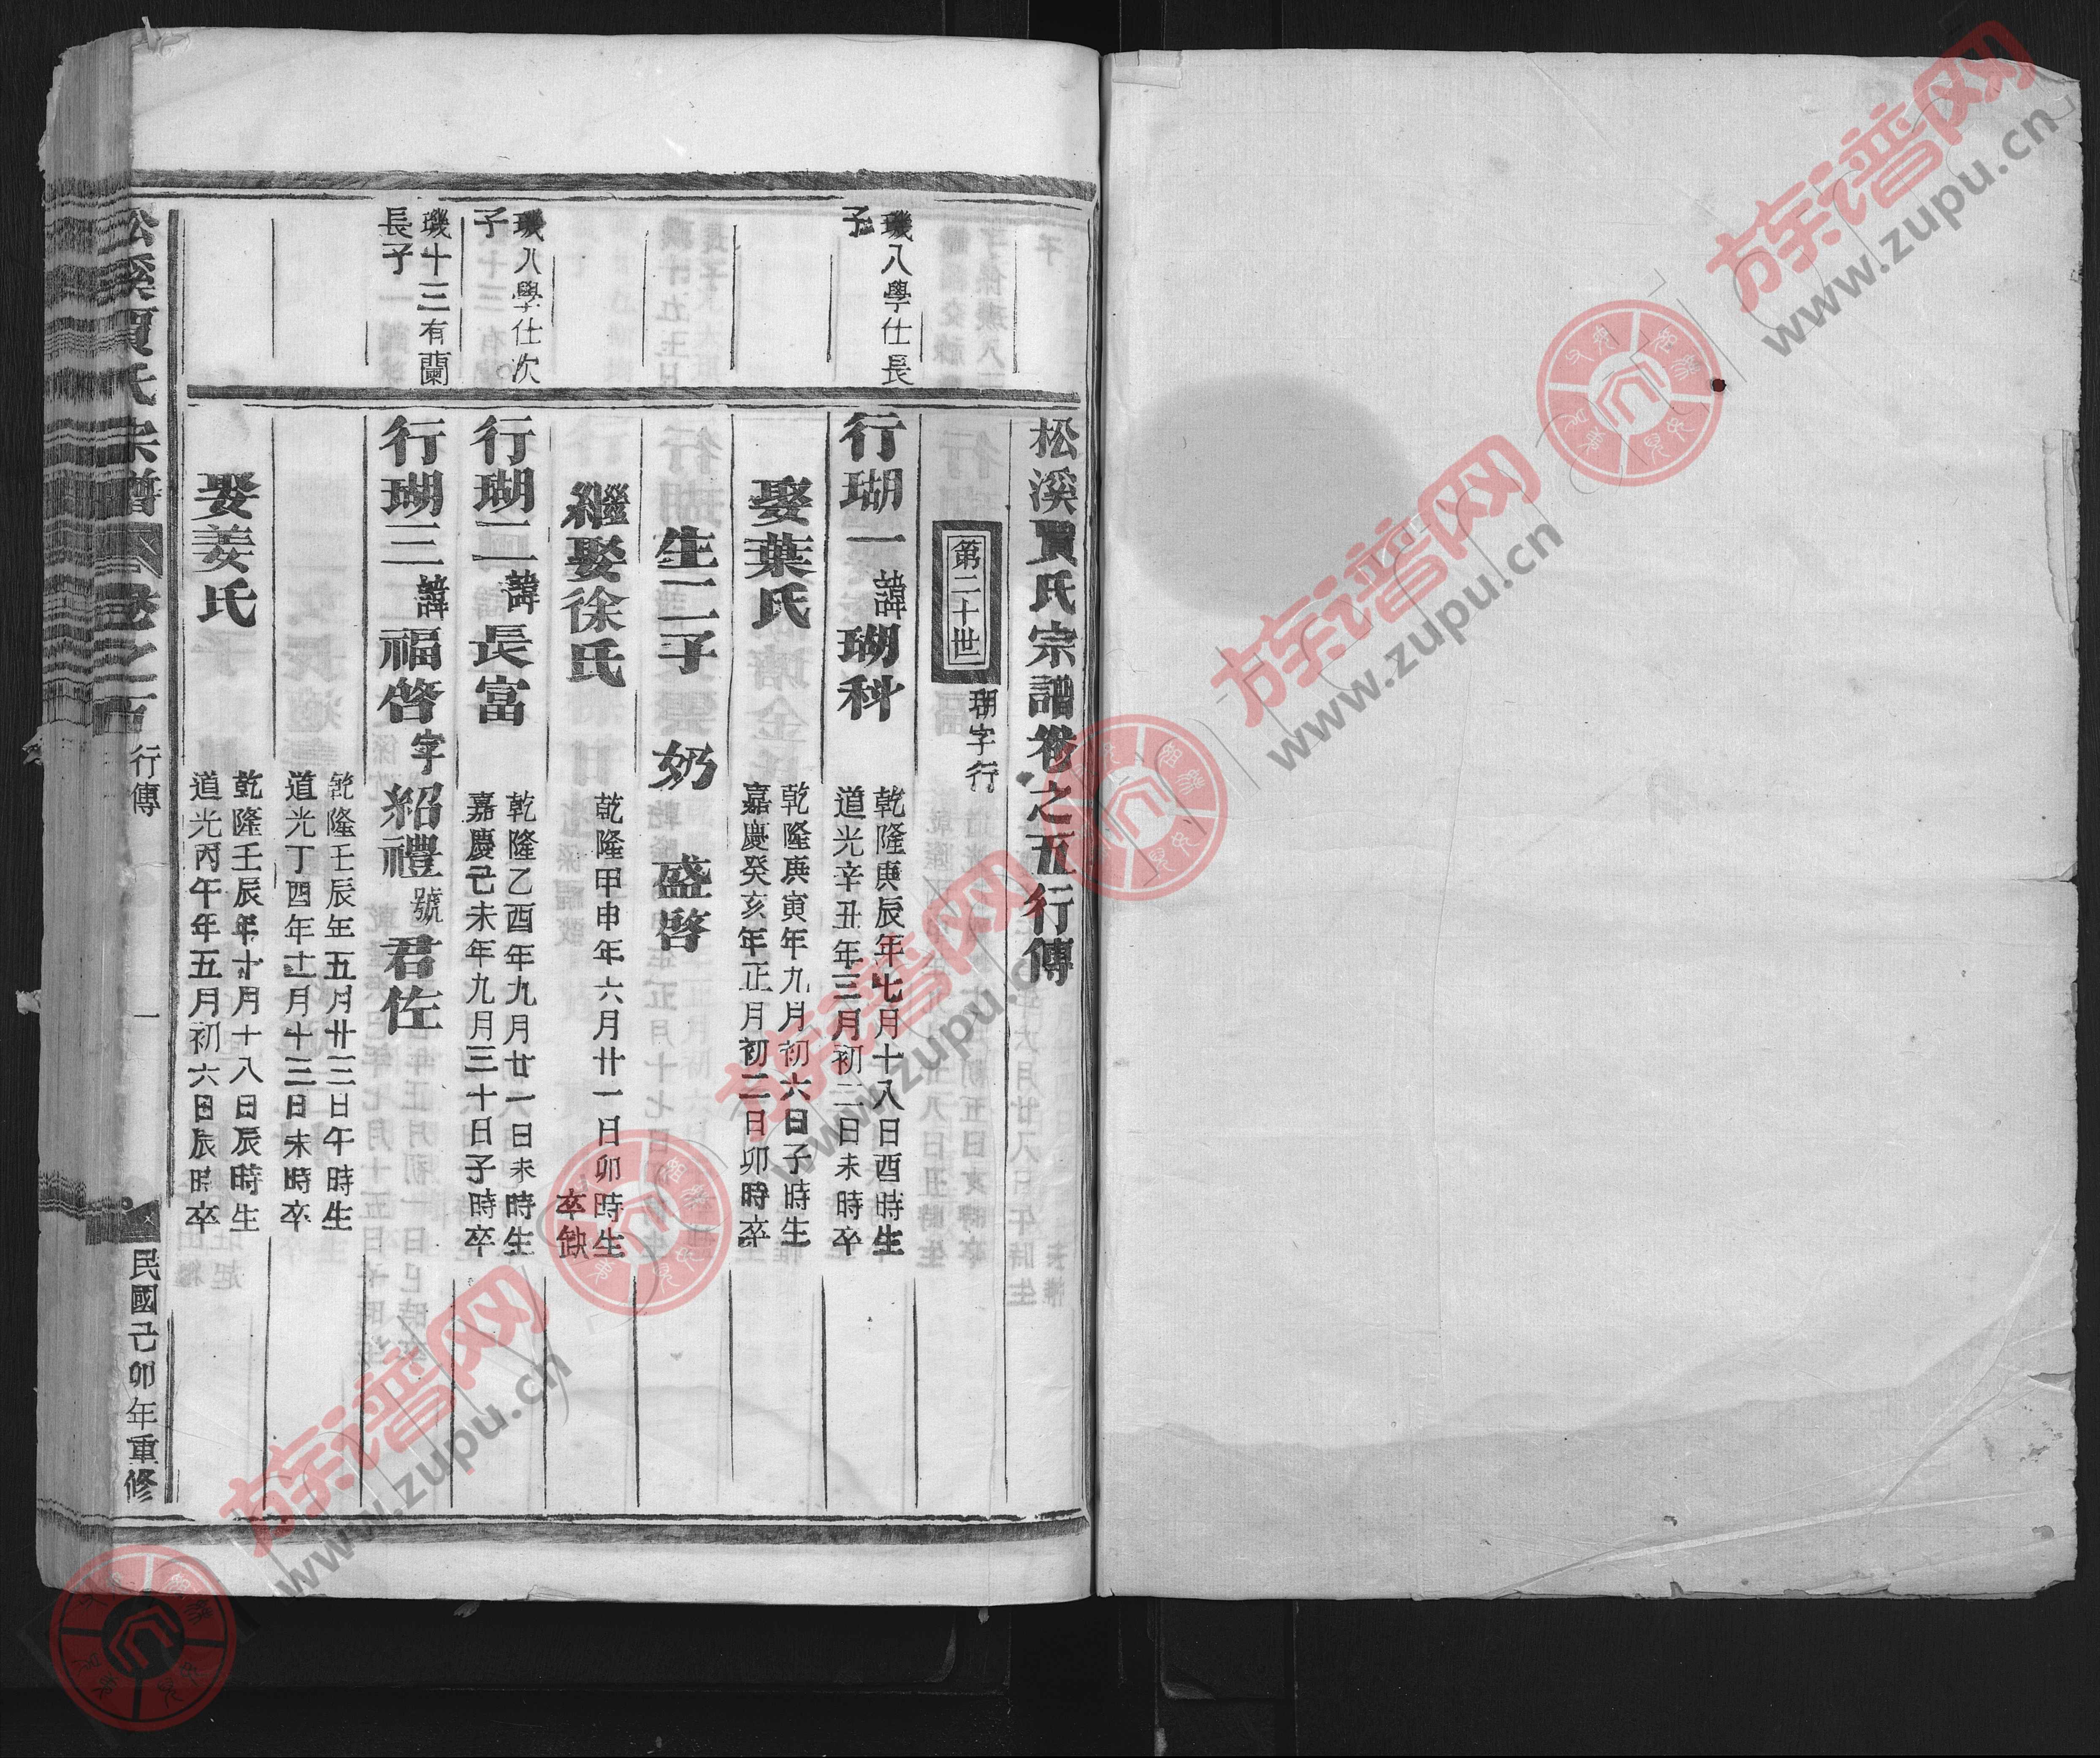 松溪賈氏宗譜卷之五行傳
第二十世
瑚字行
璣八學仕長
子
行瑚一諱瑚科
乾隆庚辰年七月十八日酉時生
道光辛丑年三月初二日未時卒
娶葉氏
乾隆庚寅年九月初六日子時生
嘉慶癸亥年正月初二日卯時卒
生二子 奶 盛啓
繼娶徐氏
乾隆甲申年六月廿一日卯時生
卒缺
璣八學仕次
子
行瑚二諱長富
乾隆乙酉年九月廿一日未時生
嘉慶己未年九月三十日子時卒
璣十三有蘭
長子
行瑚三諱福啓字紹禮號君佐
乾隆壬辰年五月廿三日午時生
道光丁酉年十一月十三日未時卒
娶姜氏
乾隆壬辰年十月十八日辰時生
道光丙午年五月初六日辰時卒
松溪賈氏宗譜
卷之五
行傳
一
民國己卯年重修
族谱网
www.zupu.cn
族谱网
www.zupu.cn
族谱网
www.zupu.cn
族谱网
www.zupu.cn